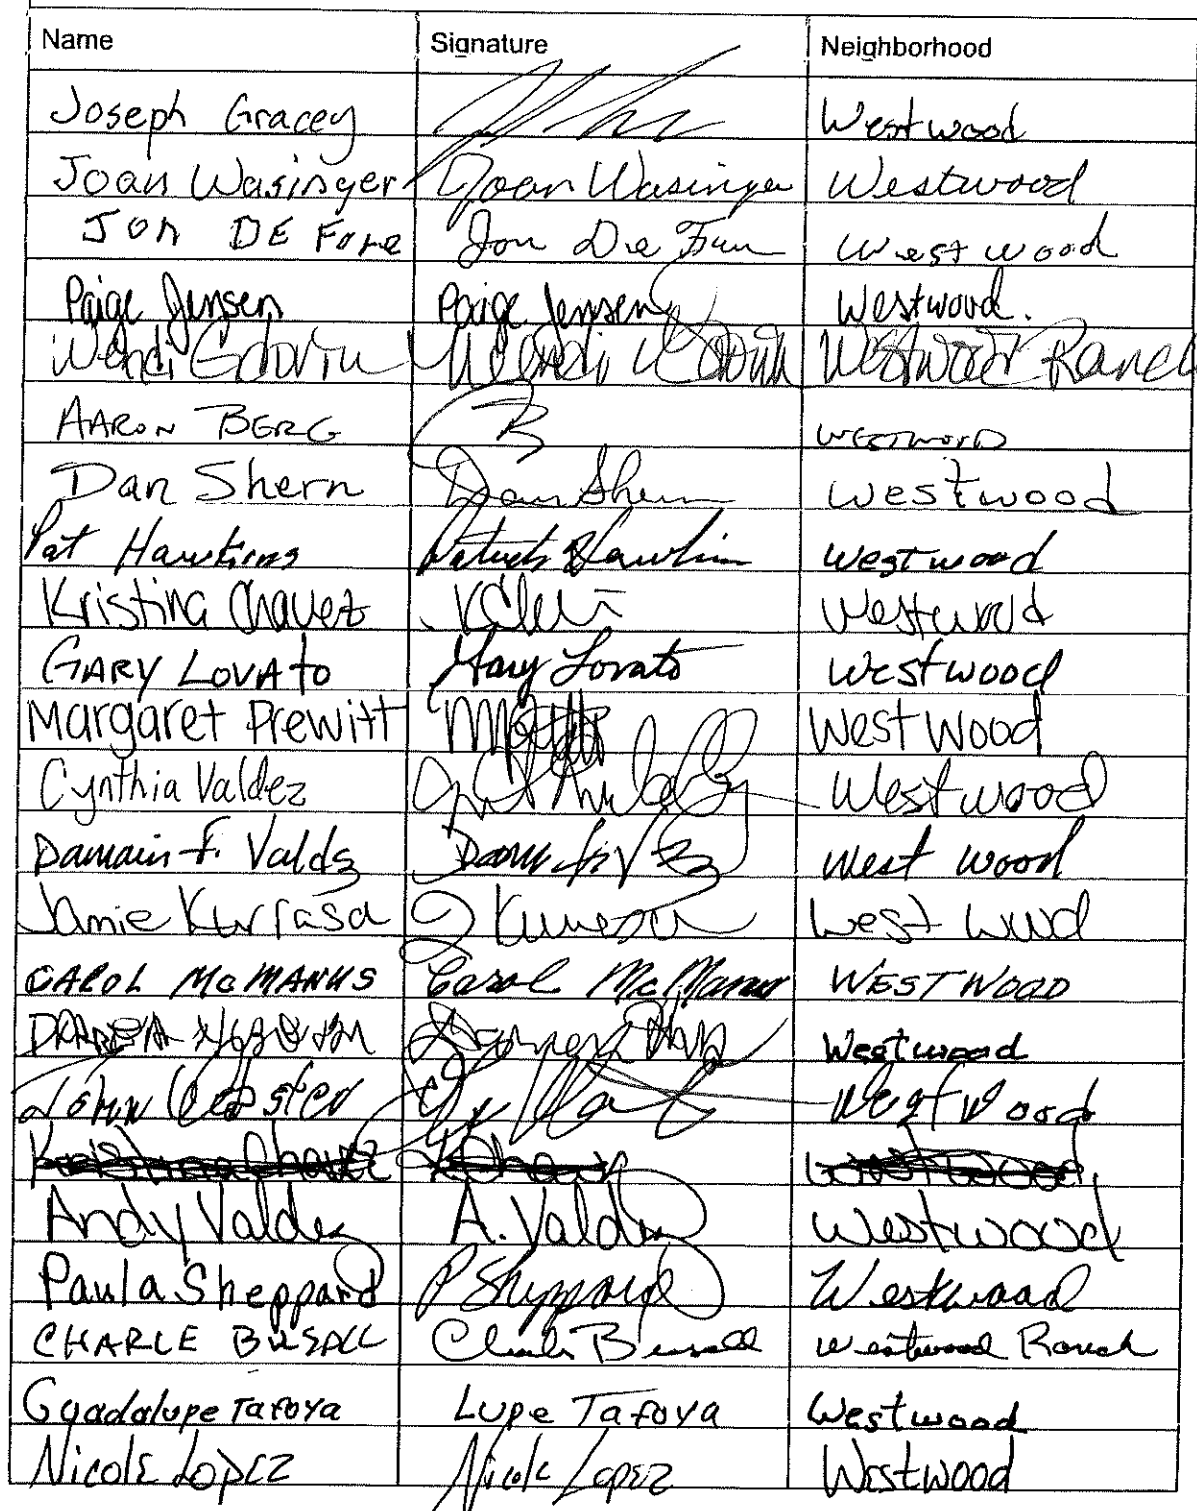 Name Signature Neighborhood
Joseph Gracey Westwood
Joan Wasinger Joan Wasinger Westwood
JON DE Fore Jon De Westwood
Paige Jensen Paige Jensen Westwood.
Wendi Wendi Westwood Ranch
AARON BERG B WESTWOOD
Dan Shern Dan Shern Westwood
Pat Hawkins Patrick Hawkins Westwood
Kristina Chavez Westwood
GARY LOVATO Gary Lovato Westwood
Margaret Prewitt West Wood
Cynthia Valdez Westwood
Damain F. Valdz West wood
Jamie West
CAROL McMANUS Carol McManus WESTWOOD
Westwood
John Westwood
Kristina Chavez Westwood
Andy Valdez A. Valdez Westwood
Paula Sheppard P Sheppard Westwood
CHARLE Westwood Ranch
Guadalupe Tafoya Lupe Tafoya Westwood
Nicole Lopez Nicole Lopez Westwood